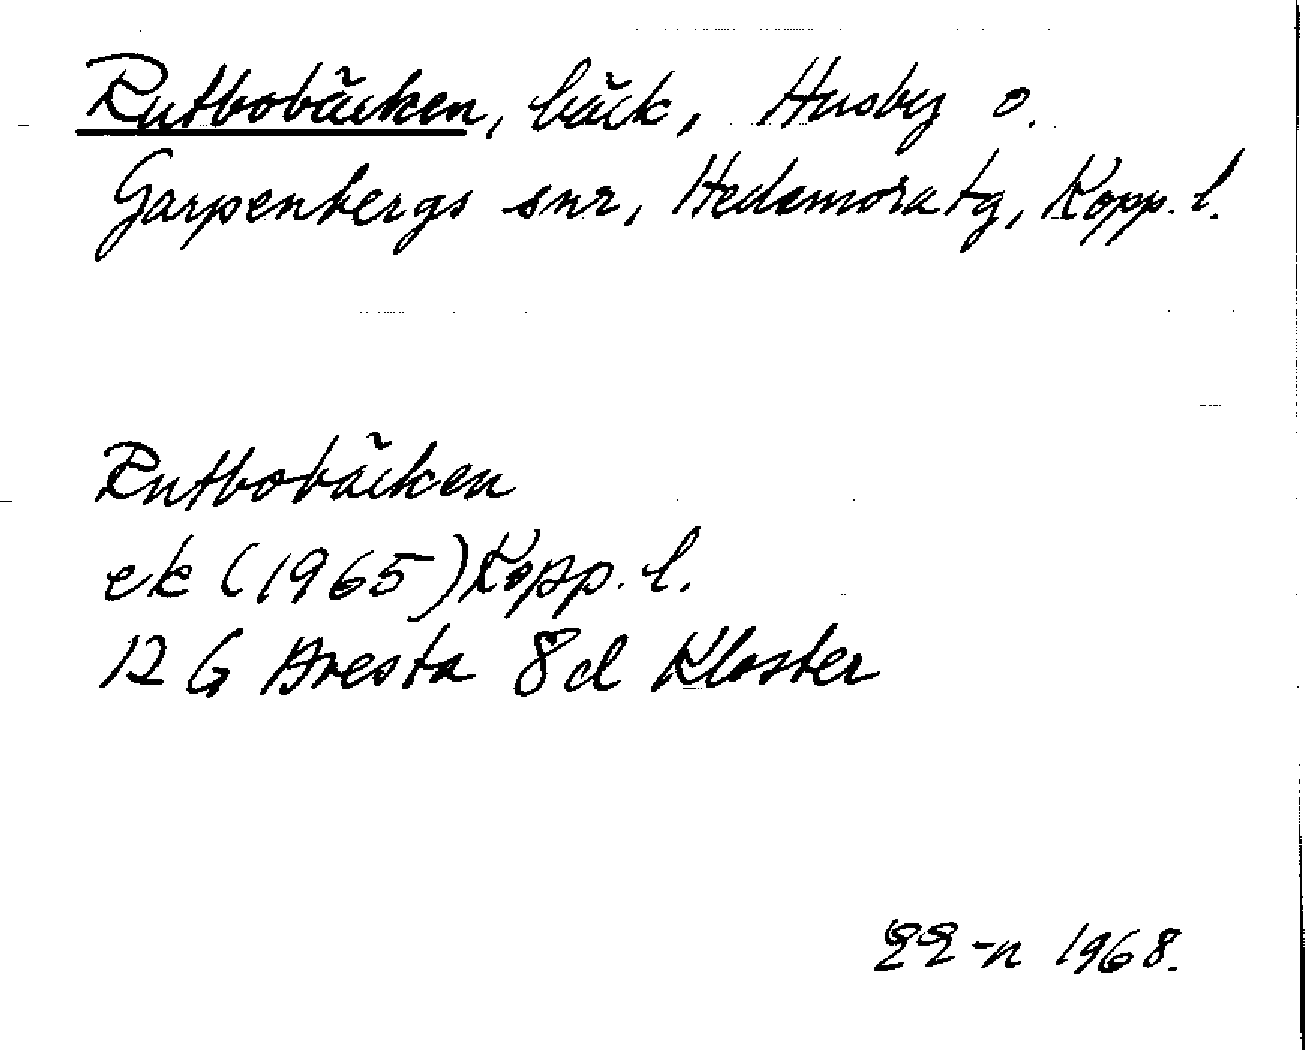 Rutbobäcken, bäck, Husby o.
Garpenbergs snr, Hedemora tg, Kopp. l.
Rutbobäcken
ek (1965) Kopp. l.
12 G Avesta 8d Kloster
1968.